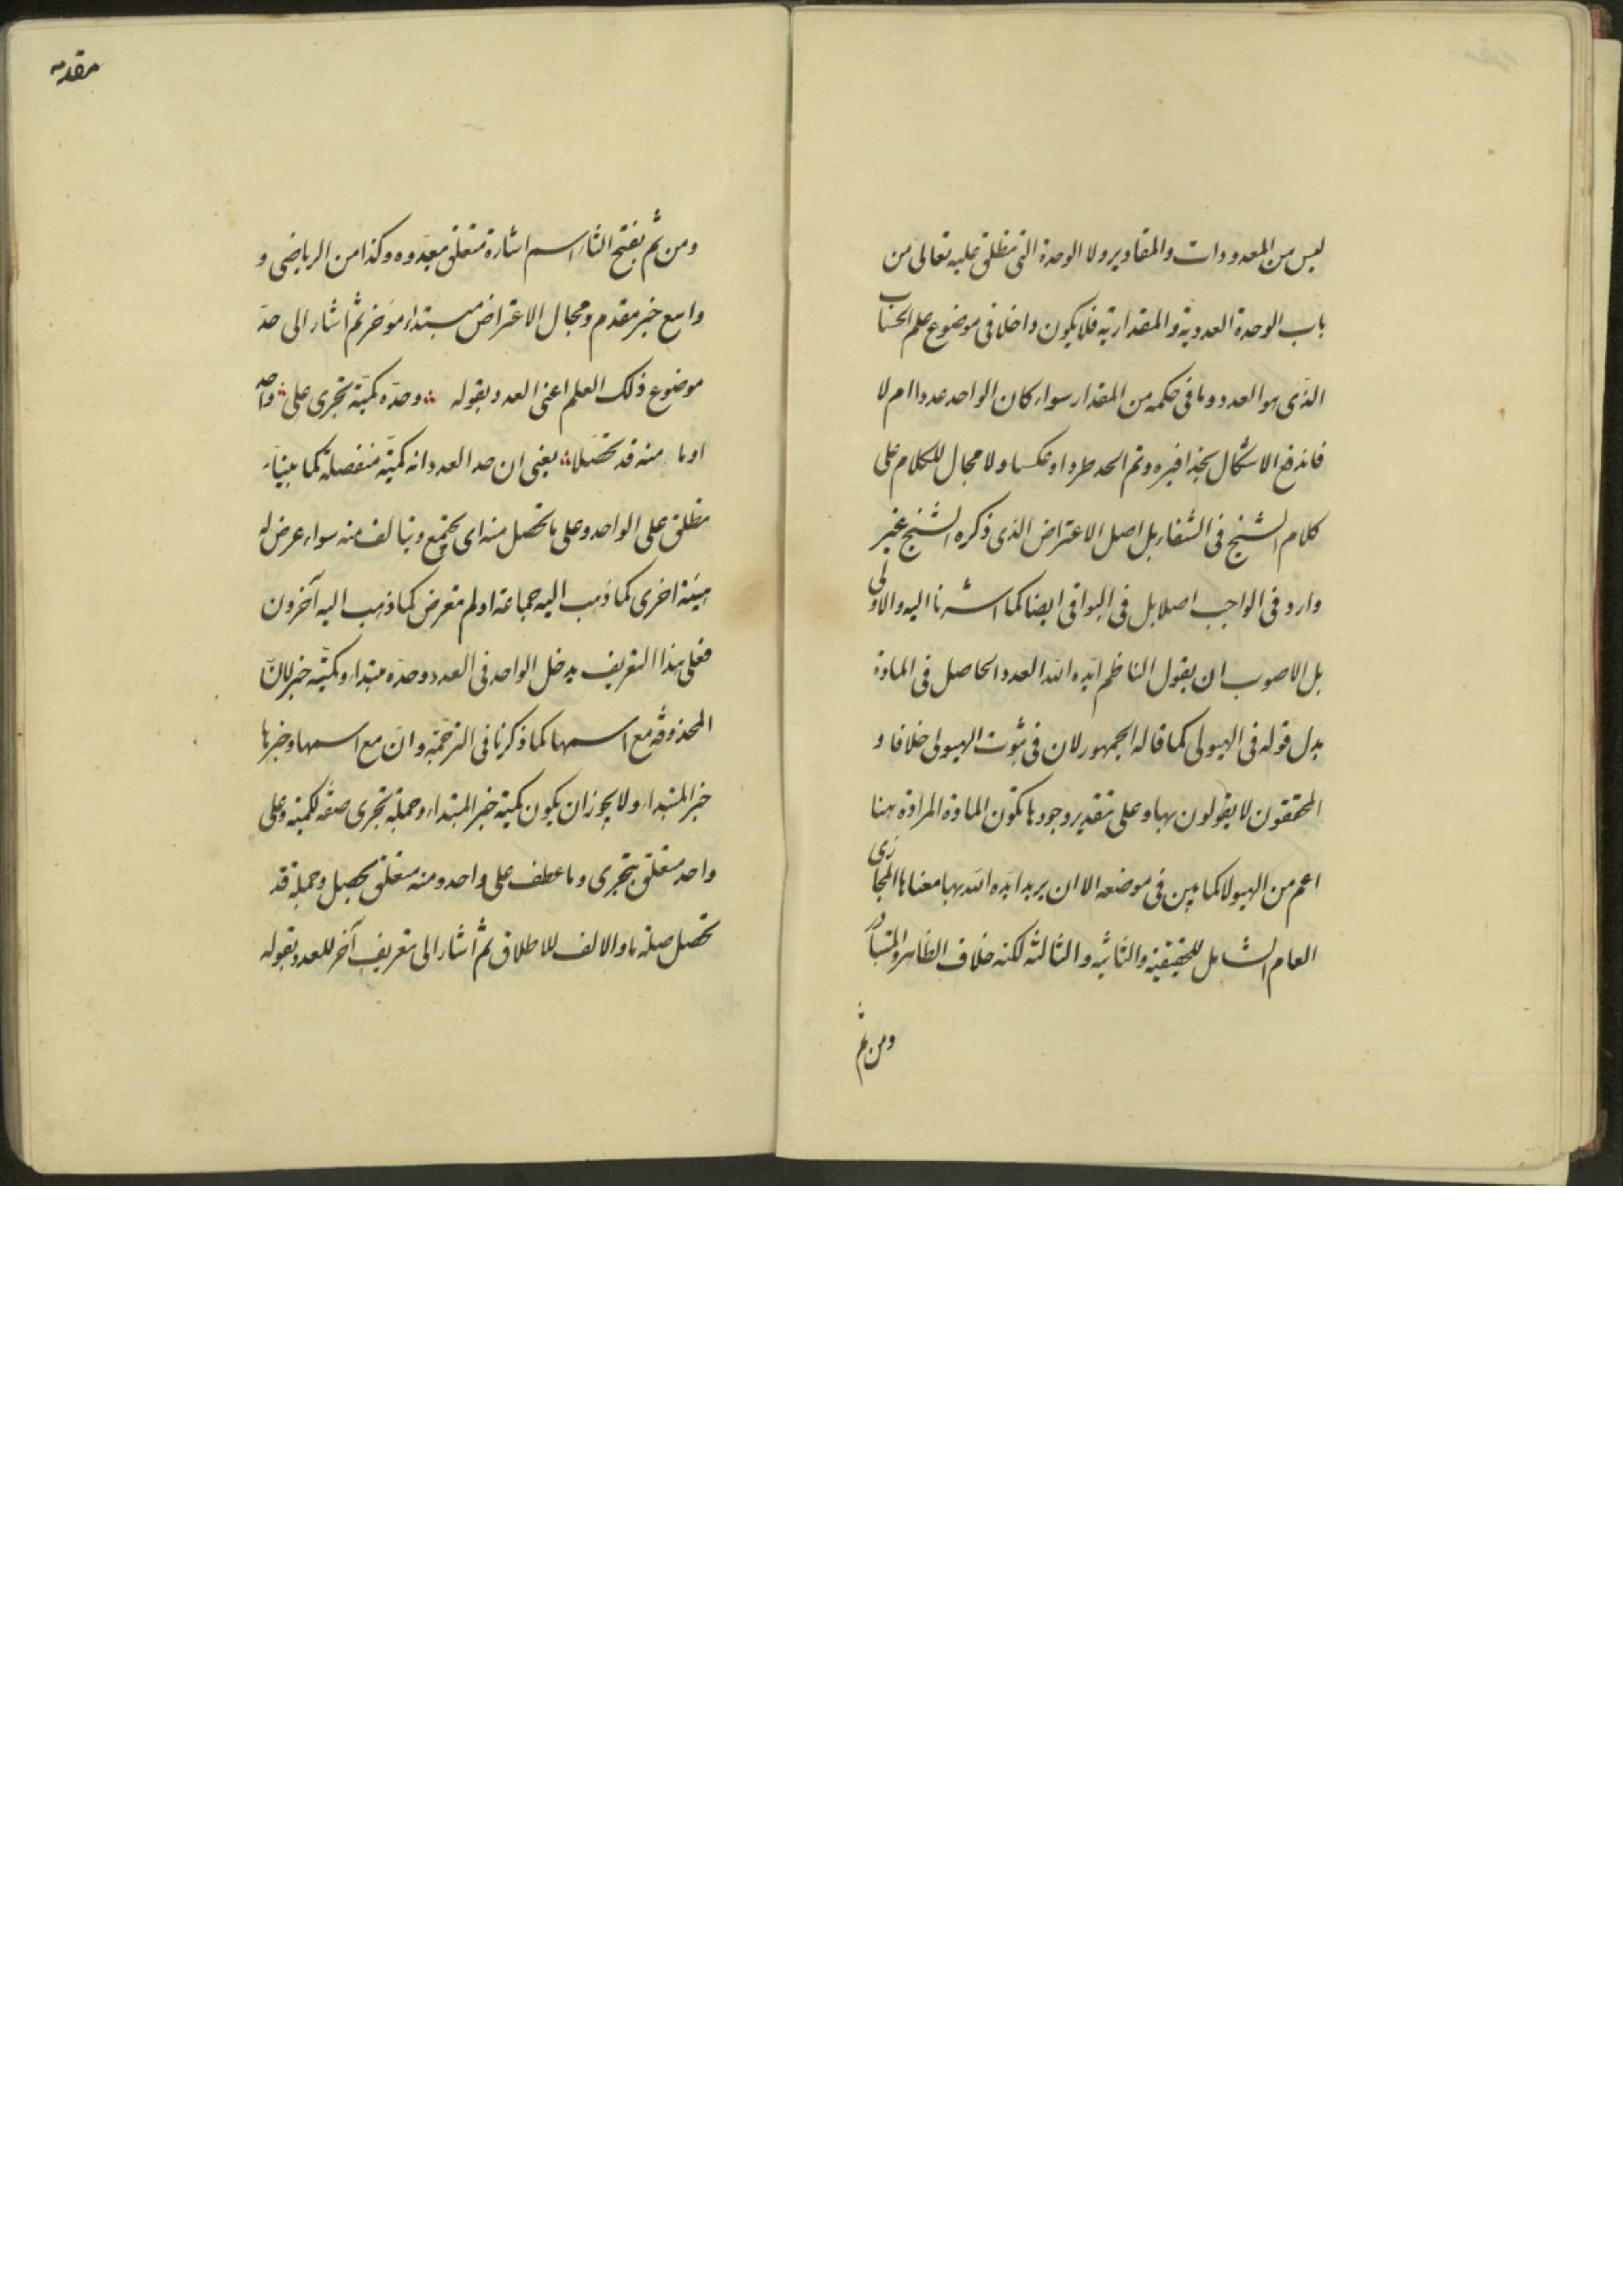 ليس من المعدودات والمقادير ولا الوحدة التى تطلق عليه تعالى من
باب الوحدة العددية والمقدارية فلا يكون داخلا فى موضوع علم الحساب
الذى هو العدد وما فى حكمه من المقدار سواء كان الواحد عددا ام لا
فاندفع الاشكال بحذافيره وتم الحد طردا وعكسا ولا مجال للكلام على
كلام الشيخ فى الشفاء بل اصل الاعتراض الذى ذكره الشيخ غير
وارد فى الواجب اصلا بل فى البواقى ايضا كما اشرنا اليه والاولى
بل الاصوب ان يقول الناظم ايّده الله العدد الحاصل فى المادة
بدل قوله فى الهيولى كما قاله الجمهور لان فى ثبوت الهيولى خلافا و
المحققون لا يقولون بها وعلى تقدير وجودها تكون المادة المرادة هنا
اعم من الهيولا كما بين فى موضعه الا ان يريد ايّده الله بها معناها المجازى
العام الشامل للحقيقية والثانية والثالثة لكنه خلاف الظاهر والمتبادر
ومن ثم
مقدمه
ومن ثم بفتح الثاء اسم اشارة متعلق بعدّوه وكذا من الرياضى و
واسع خبر مقدم ومجال الاعتراض مبتداء مؤخر ثم اشار الى حدّ
موضوع ذلك العلم اعنى العدد بقوله ∴ وحدّه كميّة تجرى على ∴ واحد
او ما منه قد تحصّلا ∴ يعنى ان حد العدد انه كميّة منفصلة كما بينّاه
تطلق على الواحد وعلى ما تحصل منه اى يجتمع ويتالف منه سواء عرض له
هيئة اخرى كما ذهب اليه جماعة او لم تعرض كما ذهب اليه آخرون
فعلى هذا التعريف يدخل الواحد فى العدد وحدّه مبتداء وكميّة خبر لانّ
المحذوفة مع اسمها كما ذكرنا فى الترجمة وانّ مع اسمها وخبرها
خبر المبتداء ولا يجوز ان يكون كمية خبر المبتداء وجملة تجرى صفة لكمية وعلى
واحد متعلق بتجرى وما عطف على واحد ومنه متعلق بحصل وجملة قد
تحصل صلة ما والالف للاطلاق ثم اشار الى تعريف آخر للعدد بقوله